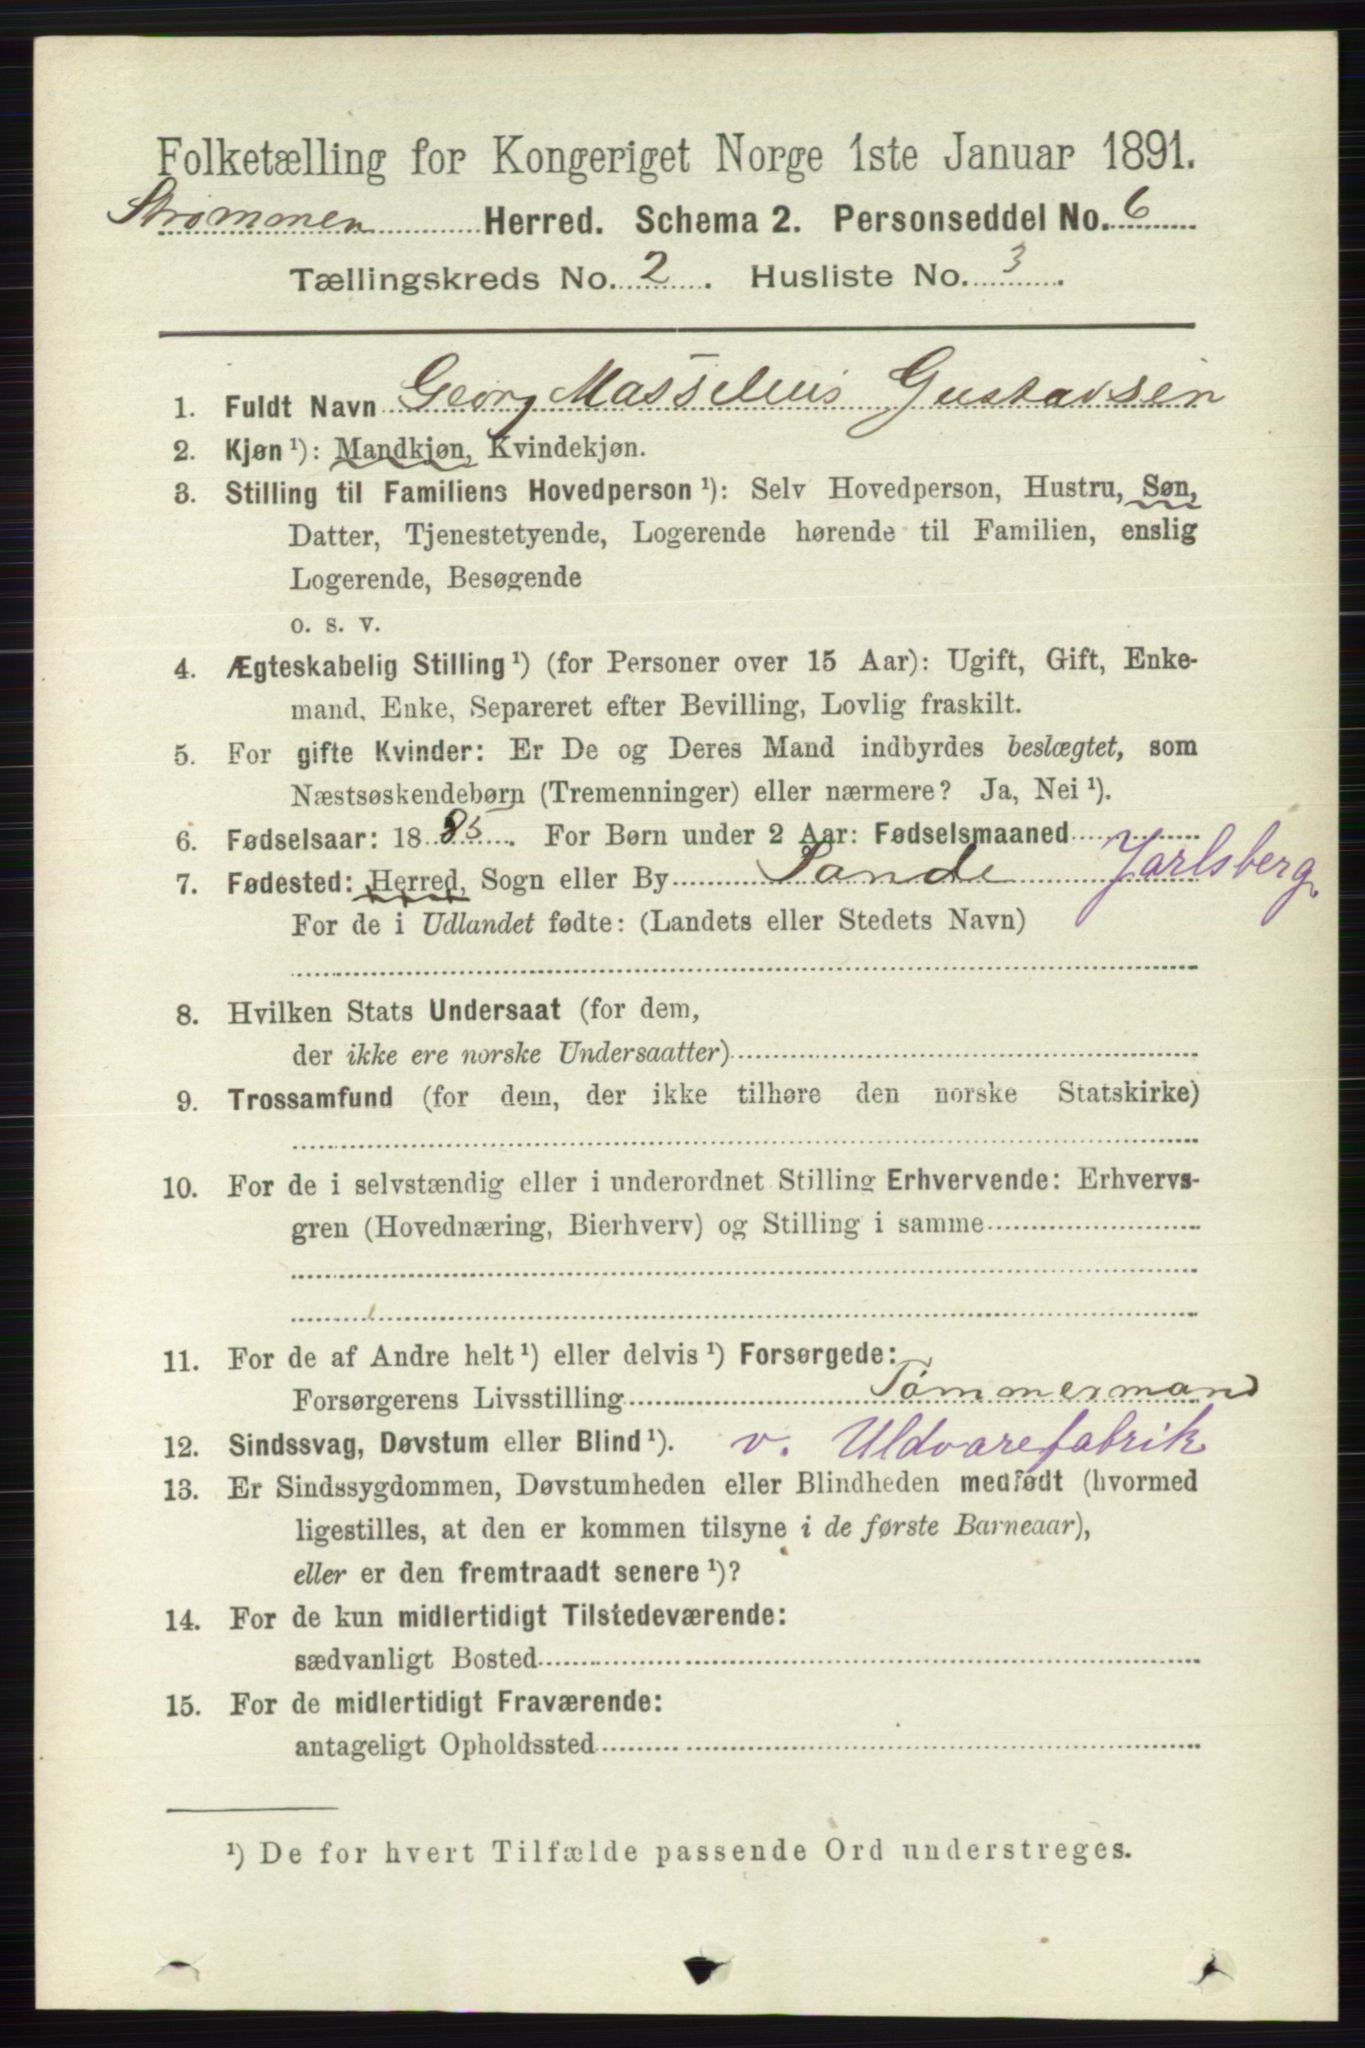 Folketælling for Kongeriget Norge 1ste Januar 1891.
Strømmen Herred. Schema 2. Personseddel No. 6
Tællingskreds No. 2. Husliste No. 3.
1. Fuldt Navn Georg Masselius Gustavsen
2. Kjøn ¹): Mandkjøn, Kvindekjøn.
3. Stilling til Familiens Hovedperson ¹): Selv Hovedperson, Hustru, Søn,
Datter, Tjenestetyende, Logerende hørende til Familien, enslig
Logerende, Besøgende
o. s. v.
4. Ægteskabelig Stilling ¹) (for Personer over 15 Aar): Ugift, Gift, Enke-
mand, Enke, Separeret efter Bevilling, Lovlig fraskilt.
5. For gifte Kvinder: Er De og Deres Mand indbyrdes beslægtet, som
Næstsøskendebørn (Tremenninger) eller nærmere? Ja, Nei ¹).
6. Fødselsaar: 1885. For Børn under 2 Aar: Fødselsmaaned
7. Fødested: Herred, Sogn eller By Sande Jarlsberg
For de i Udlandet fødte: (Landets eller Stedets Navn)
8. Hvilken Stats Undersaat (for dem,
der ikke ere norske Undersaatter)
9. Trossamfund (for dem, der ikke tilhøre den norske Statskirke)
10. For de i selvstændig eller i underordnet Stilling Erhvervende: Erhvervs-
gren (Hovednæring, Bierhverv) og Stilling i samme
11. For de af Andre helt ¹) eller delvis ¹) Forsørgede:
Forsørgerens Livsstilling Tømmermand
12. Sindssvag, Døvstum eller Blind ¹). v. Uldvarefabrik
13. Er Sindssygdommen, Døvstumheden eller Blindheden medfødt (hvormed
ligestilles, at den er kommen tilsyne i de første Barneaar),
eller er den fremtraadt senere ¹)?
14. For de kun midlertidigt Tilstedeværende:
sædvanligt Bosted
15. For de midlertidigt Fraværende:
antageligt Opholdssted
¹) De for hvert Tilfælde passende Ord understreges.